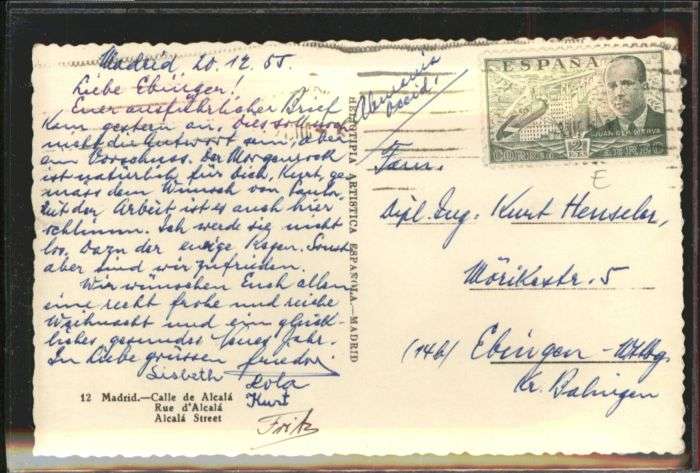 Madrid 20.12.55
Liebe Ebinger!
Euer ausführlicher Brief
kam gestern an. Dies soll noch
nicht die Antwort sein, aber
ein Vorschuss. Der Morgenrock
ist natürlich für Dich, Kurt, ge-
mäss dem Wunsch von
Mit der Arbeit ist es auch hier
schlimm. Ich werde sie nicht
los. Dazu der ewige Regen. Sonst
aber sind wir zufrieden.
Wir wünschen Euch allen
eine recht frohe und reiche
Weihnacht und ein glück-
liches, gesundes Neues Jahr.
In Liebe grüssen
Lisbeth Lola
Kurt
Fritz
12 Madrid.—Calle de Alcalá
Rue d'Alcalá
Alcalá Street
HELIOTIPIA ARTISTICA ESPAÑOLA.—MADRID
Alemania
occid.
ESPAÑA
JUAN DE LA CIERVA
CORREO 2 PTS AEREO
E
Fam.
Dipl. Ing. Kurt Henseler,
Mörikestr. 5
(14b) Ebingen-Wttbg.
Kr. Balingen